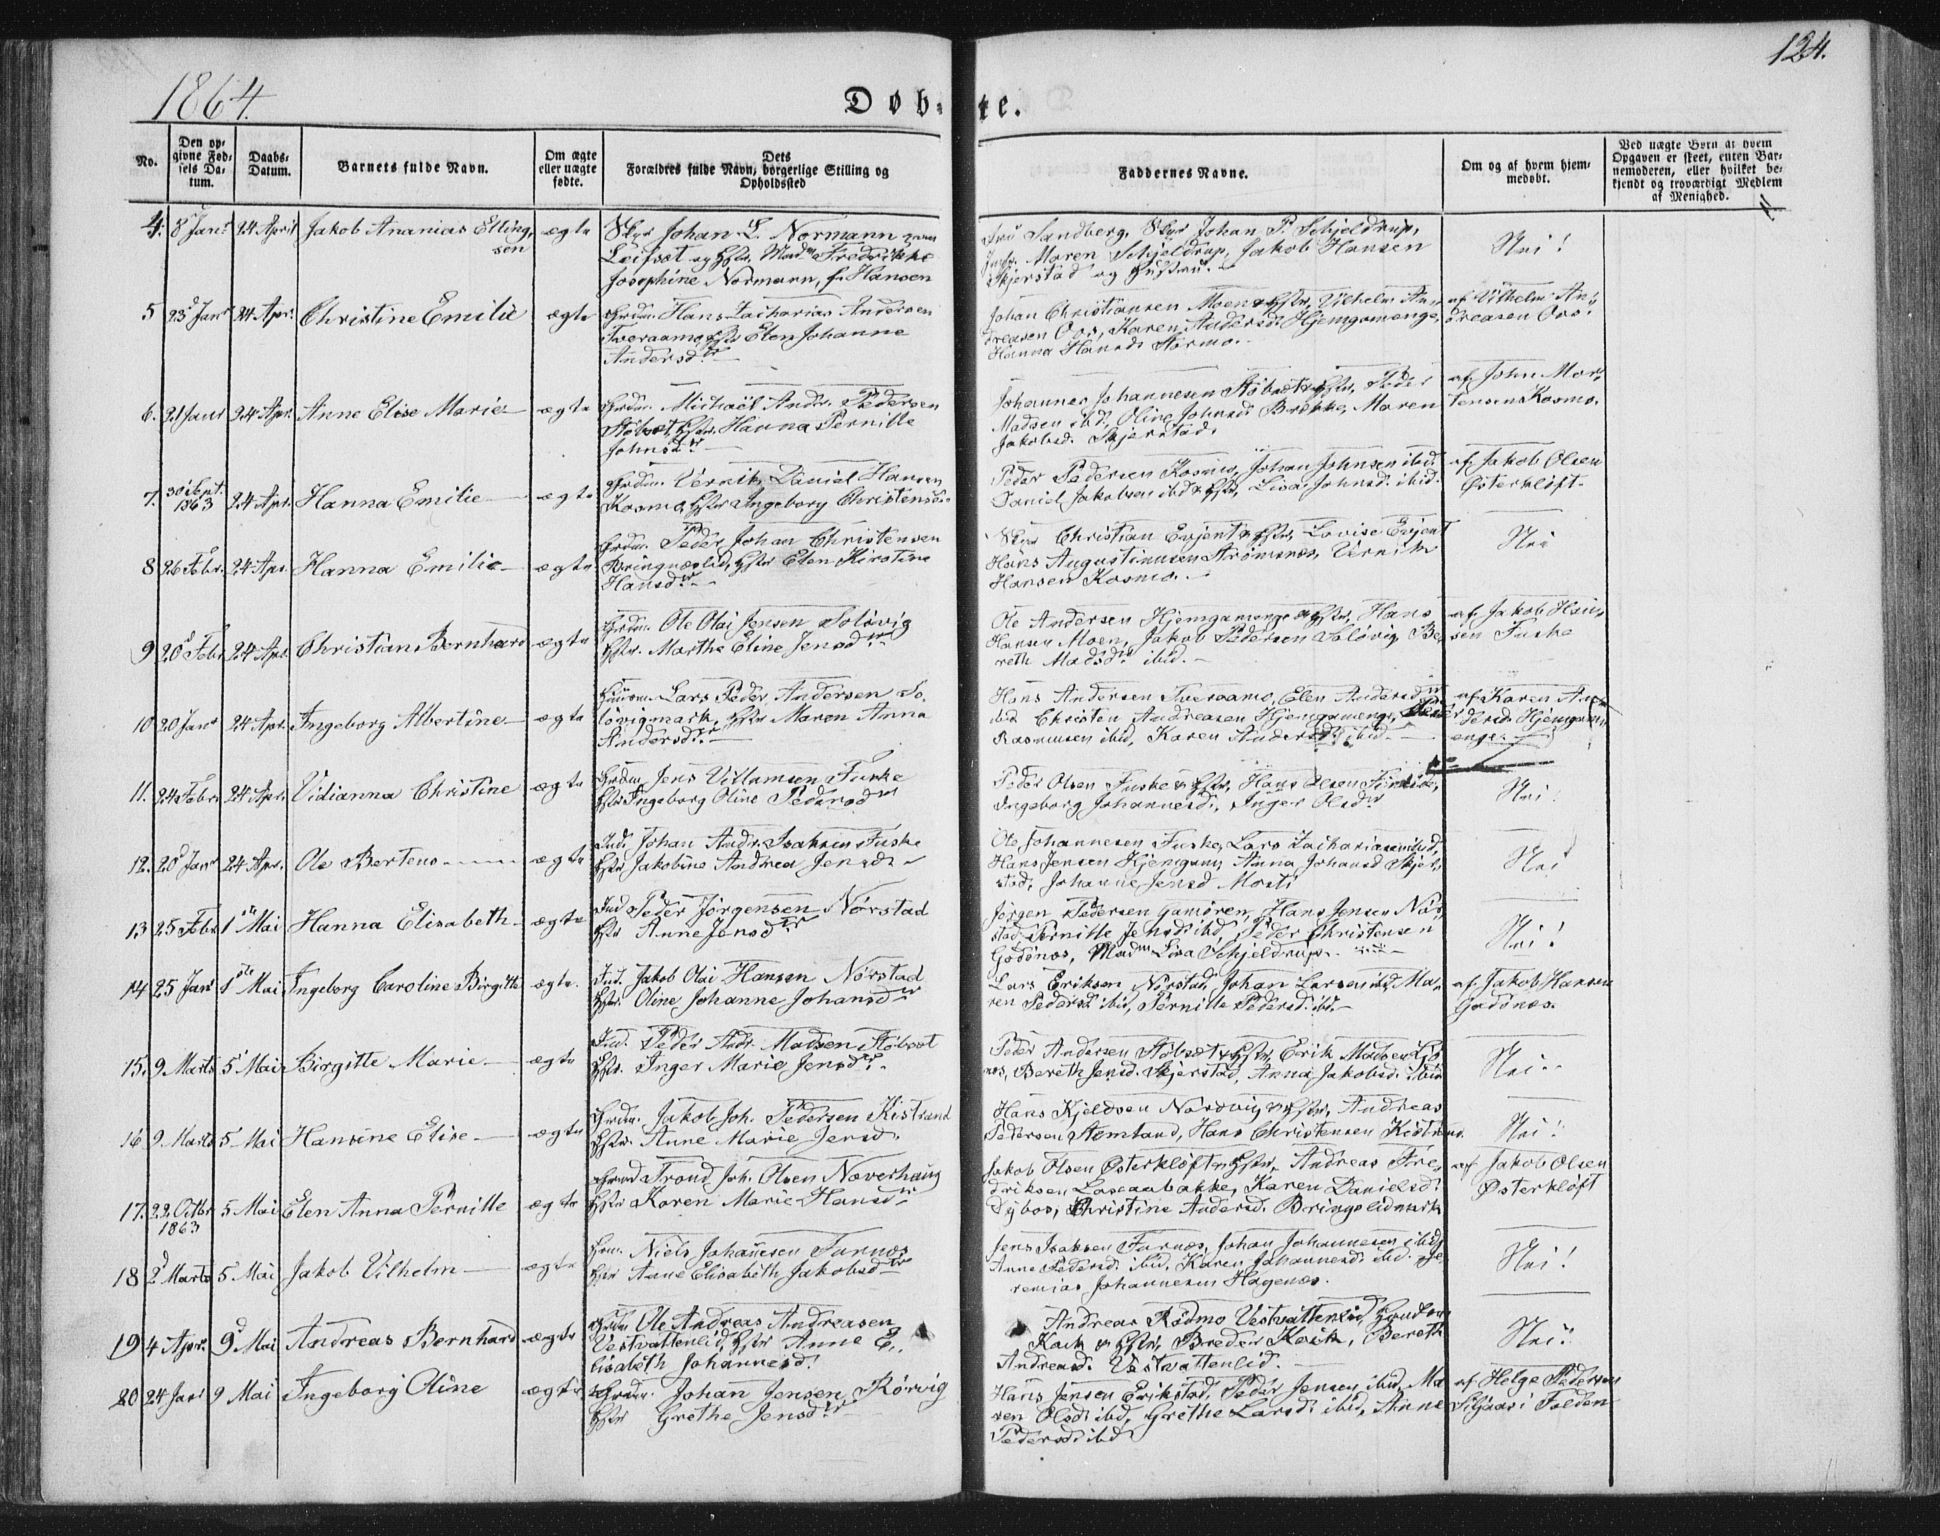 1864.
124.
Døbte.
No.
Den opgivne Fødsels Datum.
Daabs-Datum.
Barnets fulde Navn.
Om ægte eller uægte fødte.
Dets Forældres fulde Navn, borgerlige Stilling og Opholdssted
Faddernes Navne.
Om og af hvem hjemmedøbt.
Ved uægte Børn at hvem Opgaven er skeet, enten Barnemoderen, eller hvilket bekjendt og troværdigt Medlem af Menighed.
4. 8 Janr 24 April Jakob Ananias Elling,
sen
ægte
Johan L. Normann
Leifset og Hstr. Madm Fredrikke
Josephine Normann, f. Hansen
Sandberg, Johan P. Schjeldrup,
Maren Schjeldrup, Jakob Hansen
Skjerstad og Hustru.
Nei!
5 23 Janr 24 Apr. Christine Emilie ægte
Hans Zacharias Andersen
Tveraamo, Hstr Elen Johanne
Andersdtr
Johan Christiansen Moen & Hstr, Vilhelm An,
dreasen Oos, Karen Andersd. Hjemgamenge,
Hanna Hansd.
af Vilhelm An,
dreasen Oos.
6. 21 Janr 24 Apr. Anne Elise Marie ægte
Grdm. Michaël Andr. Pedersen
Støbset, Hstr. Hanna Pernille
Johnsdtr
Johannes Johannesen Støbset & Hstr, Peder
Madsen ibd, Oline Johnsd. Brække, Maren
Jakobsd. Skjerstad.
af John Mor,
tensen Kosmo.
7. 30 Sept. 1863 24 Apr. Hanna Emilie ægte
Grdm. Vernik Daniel Hansen
Kosmo, Hstr Ingeborg Christensd.
Peder Pedersen Kosmo, Johan Johnsen ibid.
Daniel Jakobsen ibd & Hstr, Lisa Johnsd. ibid.
af Jakob Olsen
Østerkløft
8 26 Febr. 24 Apr. Hanna Emilie ægte
Grdm. Peder Johan Christensen
Hstr Elen Kirstine
Hansdtr
Christian Evjent & Hstr, Lovise Evjent
Hans Augustinusen Strømsnæs, Vernik
Hansen Kosmo.
Nei
9 20 Febr 24 Apr. Christian Bernhard ægte
Grdm. Ole Olai Jensen Soløvig
Hstr. Marthe Eline Jensdtr
Ole Andersen Hjemgamenge & Hstr, Hans
Hansen Moen, Jakob Pedersen Soløvig, Be,
reth Madsd. ibid.
af Jakob Han,
sen Fuske
10 20 Janr 24 Apr. Ingeborg Albertine ægte
Lars Peder Andersen So,
løvigmark, Hstr Maren Anna
Andersdtr
Hans Andersen Tveraamo, Elen Andersdtr
ibid Christen Andreasen Hjemgamenge, Peder
Rasmusen ibid, Karen Andersd. ibid.
af Karen An,
dersd. Hjemgam,
enge
11. 24 Febr. 24 Apr. Vidianna Christine ægte
Grdm. Jens Villamsen Fuske
Hstr Ingeborg Oline Pedersdtr
Peder Olsen Fuske & Hstr, Hans Olsen
Ingeborg Johannesd., Inger Olsdtr
Nei!
12. 20 Janr 24 Apr. Ole Bertens ægte
Ind. Johan Andr. Isaksen Fuske
Hstr Jakobine Andrea Jensdr
Ole Johannesen Fuske, Lars Zachariasen ibid,
Hans Jensen Hjemgam, Anna Johansd Skjer,
stad, Johanne Jensd Mosti
Nei
13 25 Febr 1ste Mai Hanna Elisabeth ægte
Ind Peder Jørgensen Nørstad
Hstr Anne Jensdtr
Jørgen Pedersen Hans Jensen Nør,
stad, Pernille Jensd ibid, Peder Christensen
Godønes, Madm Lisa Schjeldrup.
Nei!
14 25 Janr 1ste Mai Ingeborg Caroline Birgitte ægte.
Ind. Jakob Olai Hansen Nørstad
Hstr. Oline Johanne Johansdtr
Lars Eriksen Nørstad, Johan Larsen ibid, Ma,
ren Pedersd. ibid, Pernille Pedersd. ibd.
af Jakob Hansen
Godønes.
15. 9 Marts 5 Mai Birgitte Marie ægte
Ind. Peder Andr. Madsen Støbset
Hstr. Inger Marie Jensdtr
Peder Andersen Støbset & Hstr, Erik Madsen
Bereth Jensd. Skjerstad, Anna Jakobsd. ibid
Nei
16 9. Marts 5 Mai Hansine Elise ægte
Grdm. Jakob Joh. Pedersen Kistrand
Hstr. Anne Marie Jensd.
Hans Kjeldsen Nordvig & Hstr, Andreas
Pedersen Hans Christensen Kistrand.
Nei!
17. 22 Octbr 1863 5 Mai Elen Anna Pernille ægte
Trond Joh. Olsen Næverhaug
Hstr Karen Marie Hansdtr
Jakob Olsen Østerkløft & Hstr, Andreas Fre,
driksen Karen Danielsd.
Christine Andersd.
af Jakob Olsen
Østerkløft
18 2d Marts 5 Mai Jakob Vilhelm ægte
Niels Johannesen Farnæs
Hstr Anne Elisabeth Jakobsdtr
Jens Isaksen Farnæs, Johan Johannesen ibid
Anne Pedersd. ibid, Karen Johannesd. ibid. Je,
remias Johannesen Hagenæs.
Nei!
19 4 Apr. 9d Mai Andreas Bernhard ægte
Ole Andreas Andreasen
Vestvattenlid, Hstr Anne E,
lisabeth Johannesd.
Andreas Rødmo Vestvattenlid,
Koch & Hstr, Breder Koch, Bereth
Andreasd. Vestvattenlid.
Nei
20 24 Janr 9 Mai Ingeborg Oline ægte
Grdm. Johan Jensen Rørvig
Hstr Grethe Jensdtr
Hans Jensen Erikstad, Peder Jensen ibid, Ma,
ren Olsd. ibid, Grethe Larsd. ibid, Anne
Pedersd ibd
af Helge Pedersen
i Folden